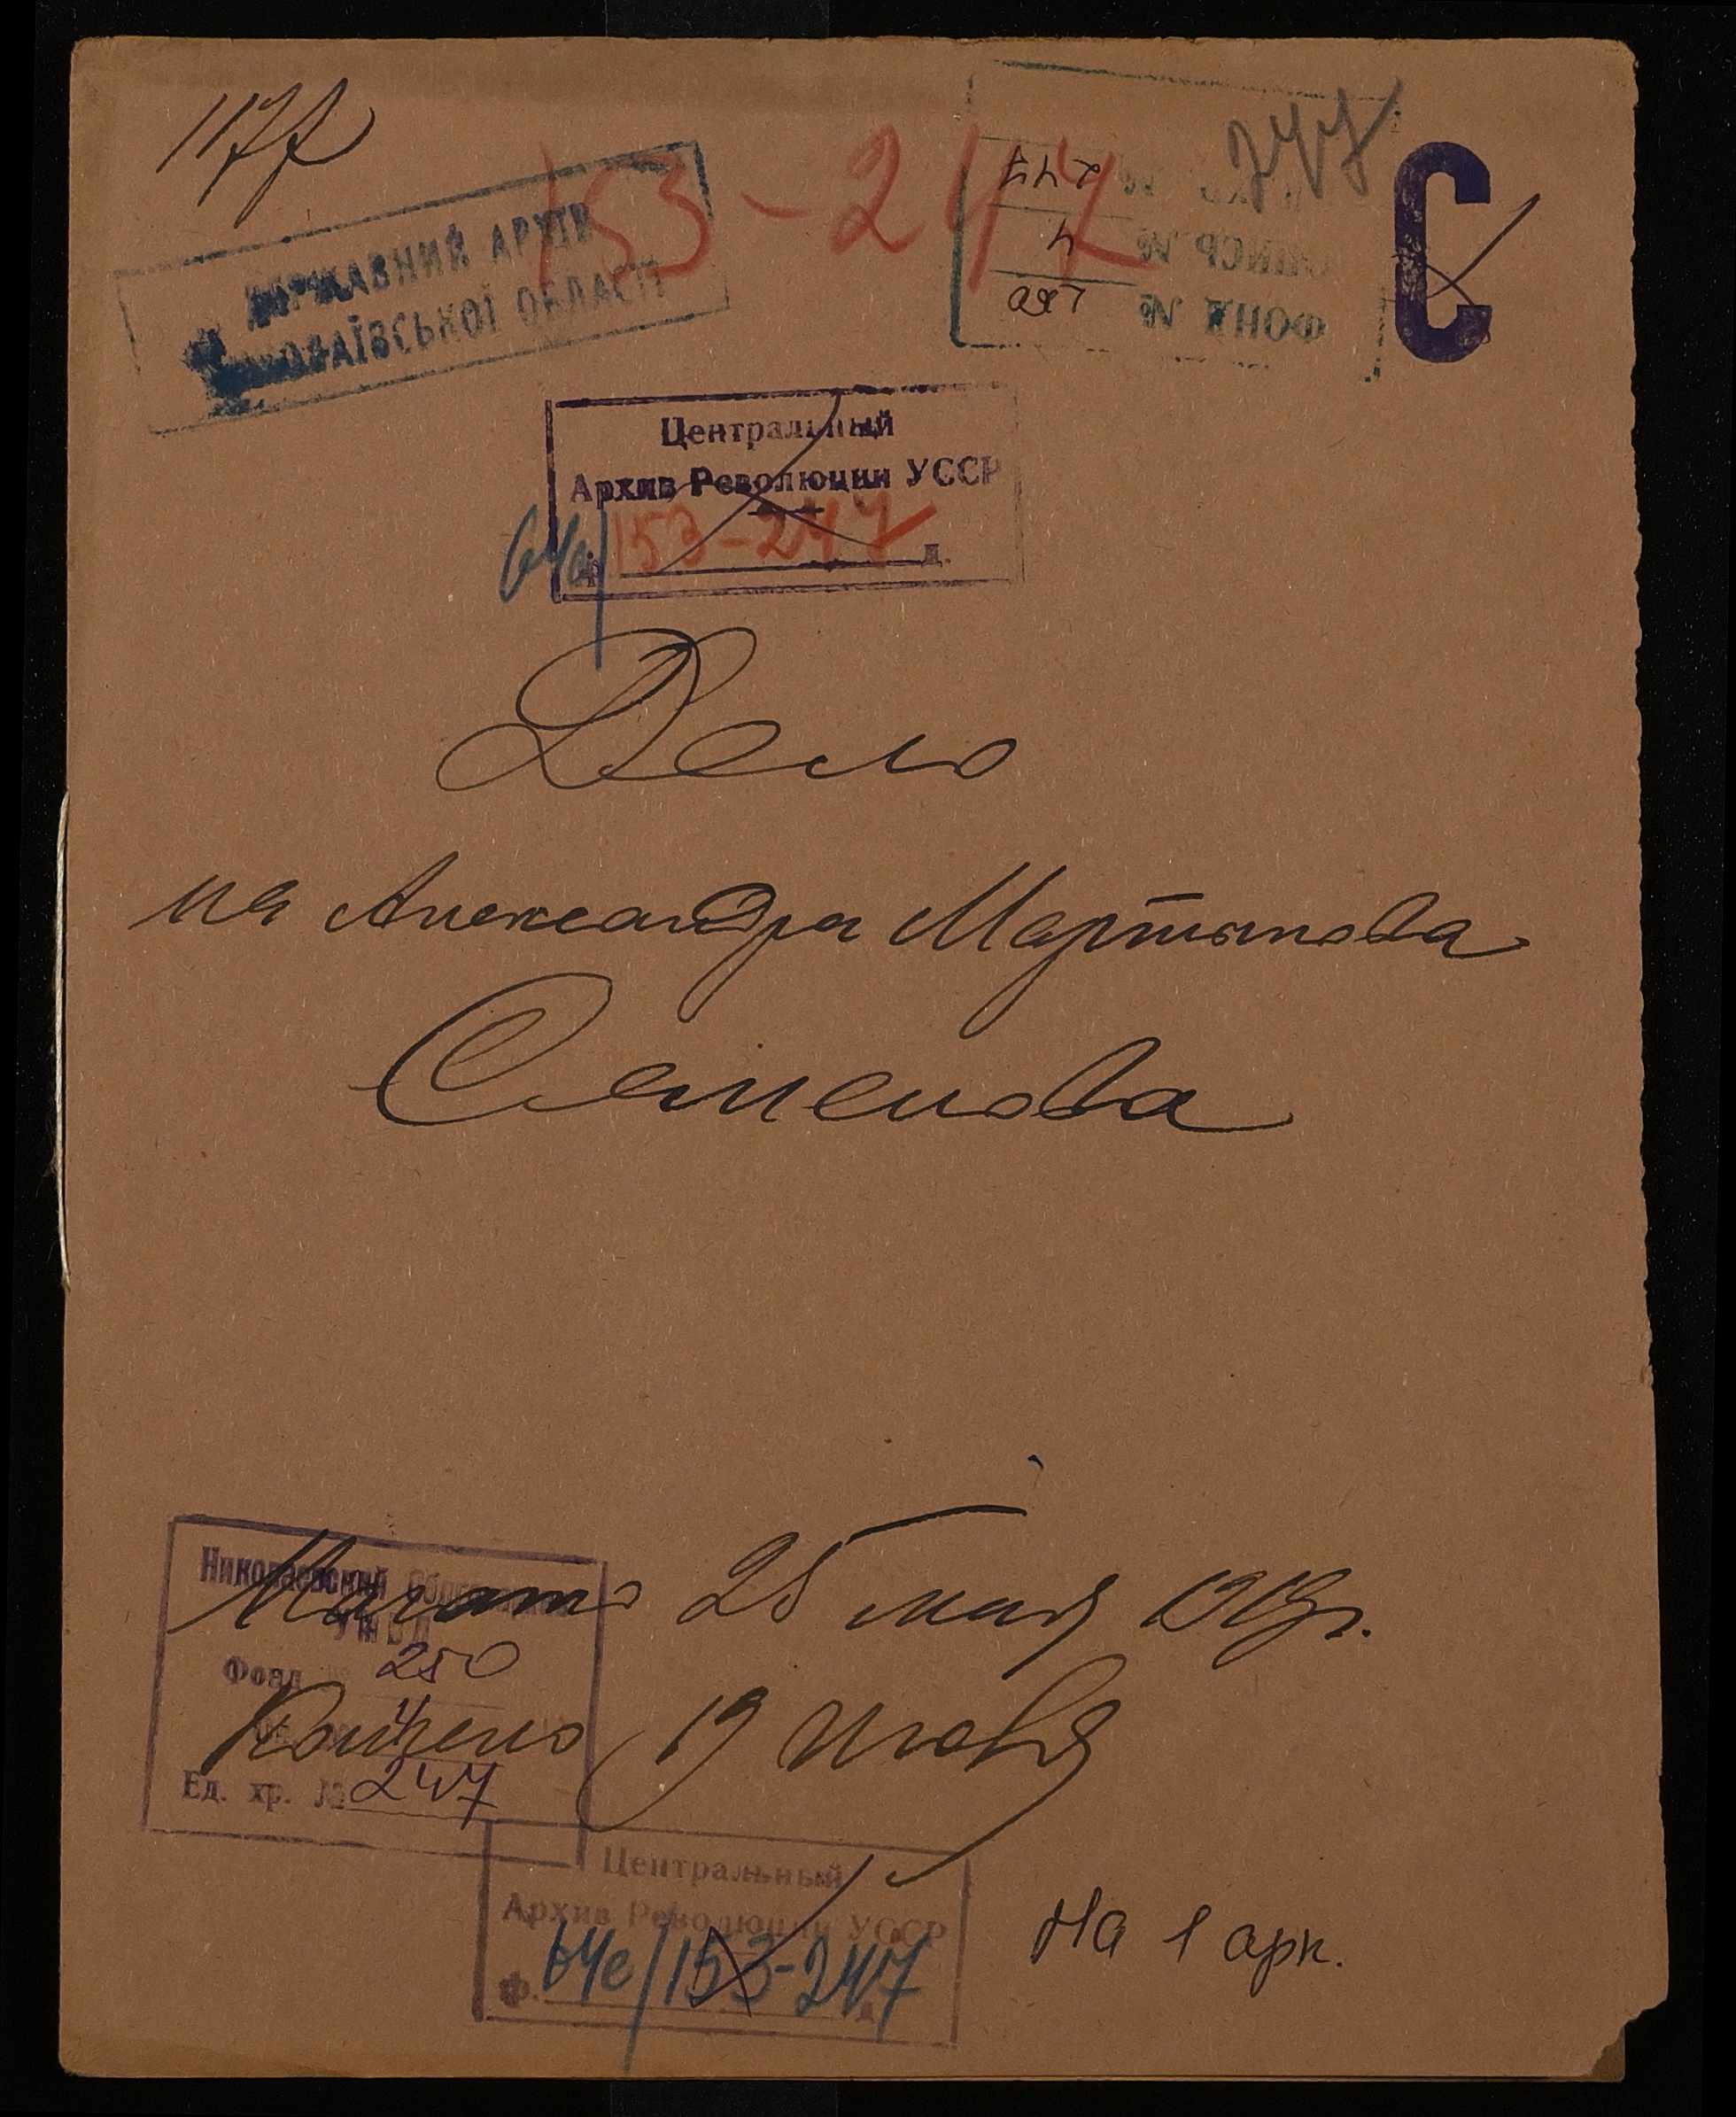 1177
153-247
247
С
ДЕРЖАВНИЙ АРХІВ
МИКОЛАЇВСЬКОЇ ОБЛАСТІ
ФОНД № 250
ОПИСЬ № 4
247
Центральный
Архив Революции УССР
64е/153-247 д.
Дело
на Александра Мартынова
Семенова
Начато 25 мая 1919г.
Кончено 19
Николаевский Областной
Фонд 250
4
Ед. хр. № 247
Центральный
Архив Революции УССР
ф. 64е/153-247 д.
На 1 арк.